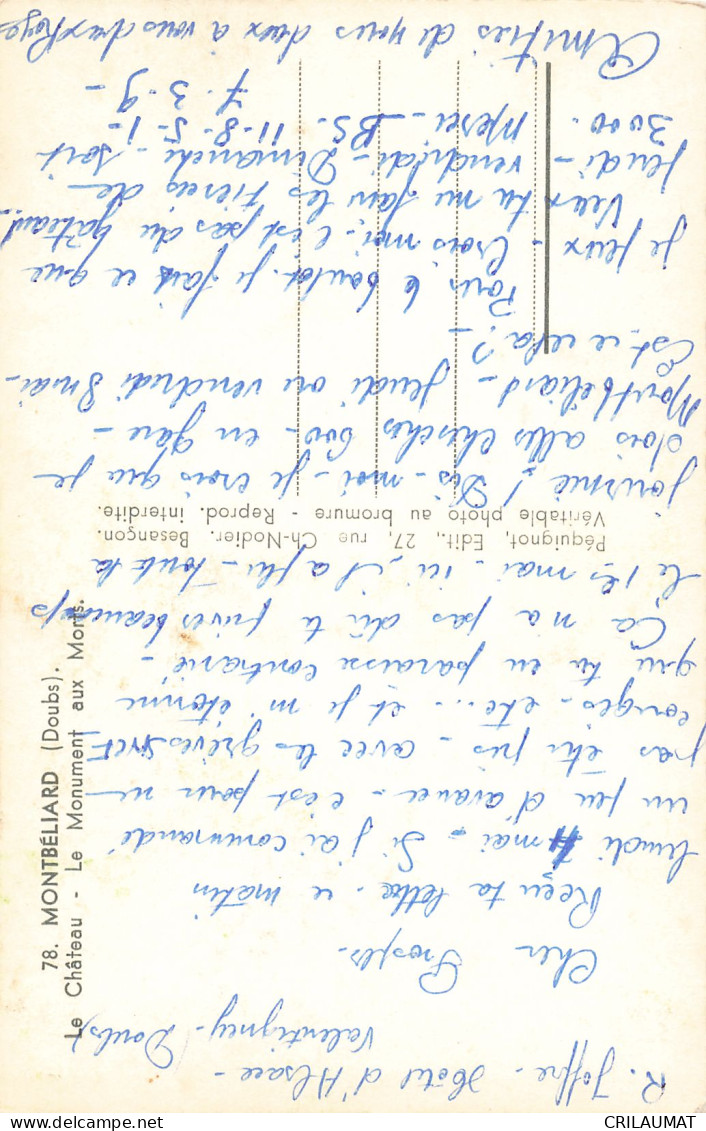 R. Joffre - Hôtel d'Alsace -
Valentigney - Doubs)
Cher Prosper -
Reçu ta lettre - ce matin
lundi 4 mai - Si j'ai commandé
un peu d'avance - c'est pour ne
pas être pris - avec les grèves SNCF
congés - etc... - et je m'étonne
que tu en paraisse contrarié -
Ca n'a pas dû te priver beaucoup
Le 1er mai - ici, il a plu - toute la
journée ! Dis-moi - je crois que je
dois aller chercher 600 - en gare -
Montbéliard - jeudi ou vendredi 8 mai -
Est-ce cela ? -
Pour le boulot - je fais ce que
je peux - Crois moi - c'est pas du gâteau !
Veux tu me faire les tierces de
jeudi - vendredi - Dimanche - soit
3000. Merci - BS. 11-8-5-1-
7-3-9-
Amitiés de nous deux a vous deux Roge
78. MONTBÉLIARD (Doubs).
Le Château - Le Monument aux Morts.
Péquignot, Edit., 27, rue Ch-Nodier. Besançon.
Véritable photo au bromure - Reprod. interdite.
CRILAUMAT